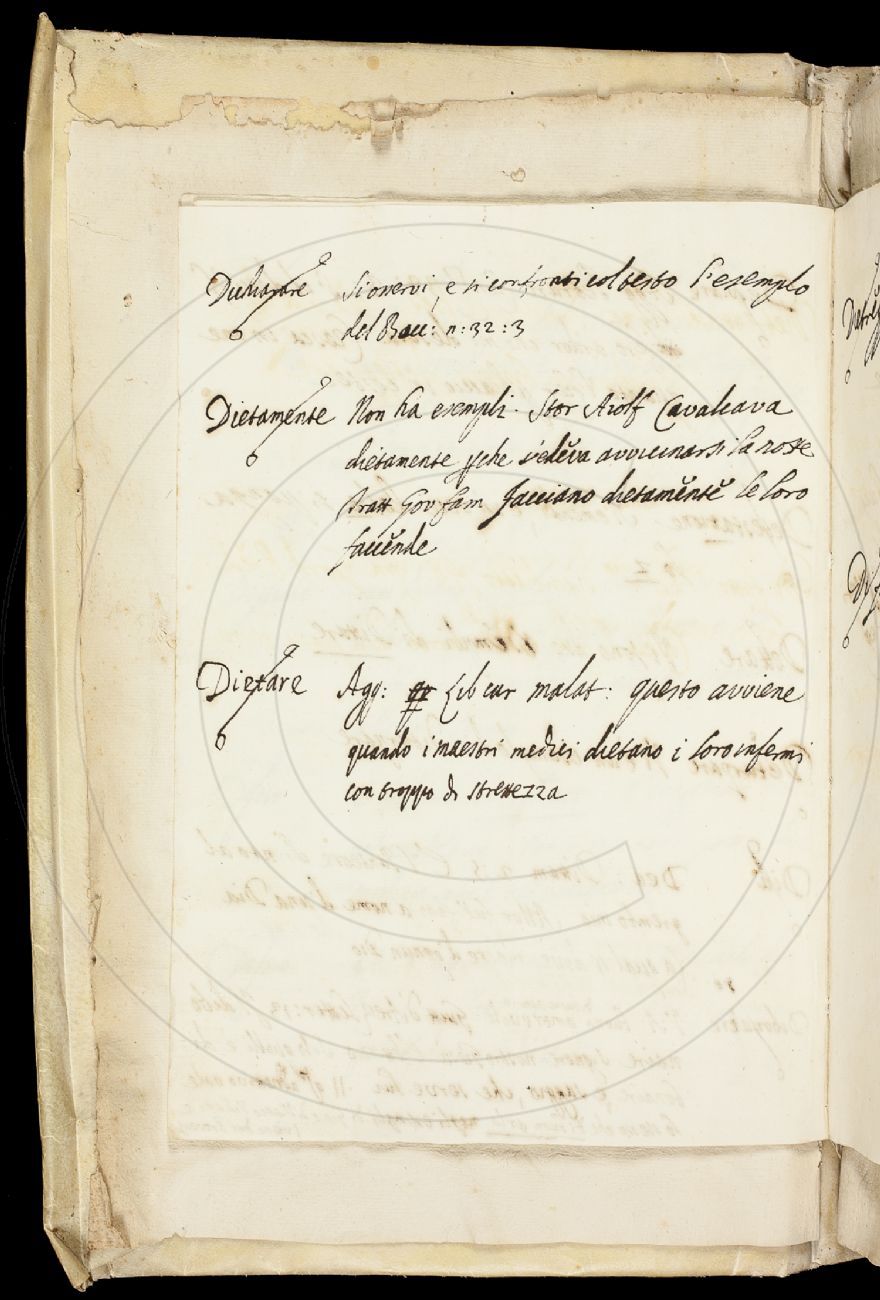 Dichiarare Si osservi, e si confronti col testo l'esemplo
del Bocc: n: 32: 3
Dietamente Non ha esempli. Stor Aiolf Cavalcava
dietamente pche vedeva avvicinarsi la notte
Tratt Gov fam facciano dietamente le loro
faccende
Dietare Agg: Lib cur malat: questo avviene
quando i maestri medici dietano i loro infermi
con troppo di strettezza